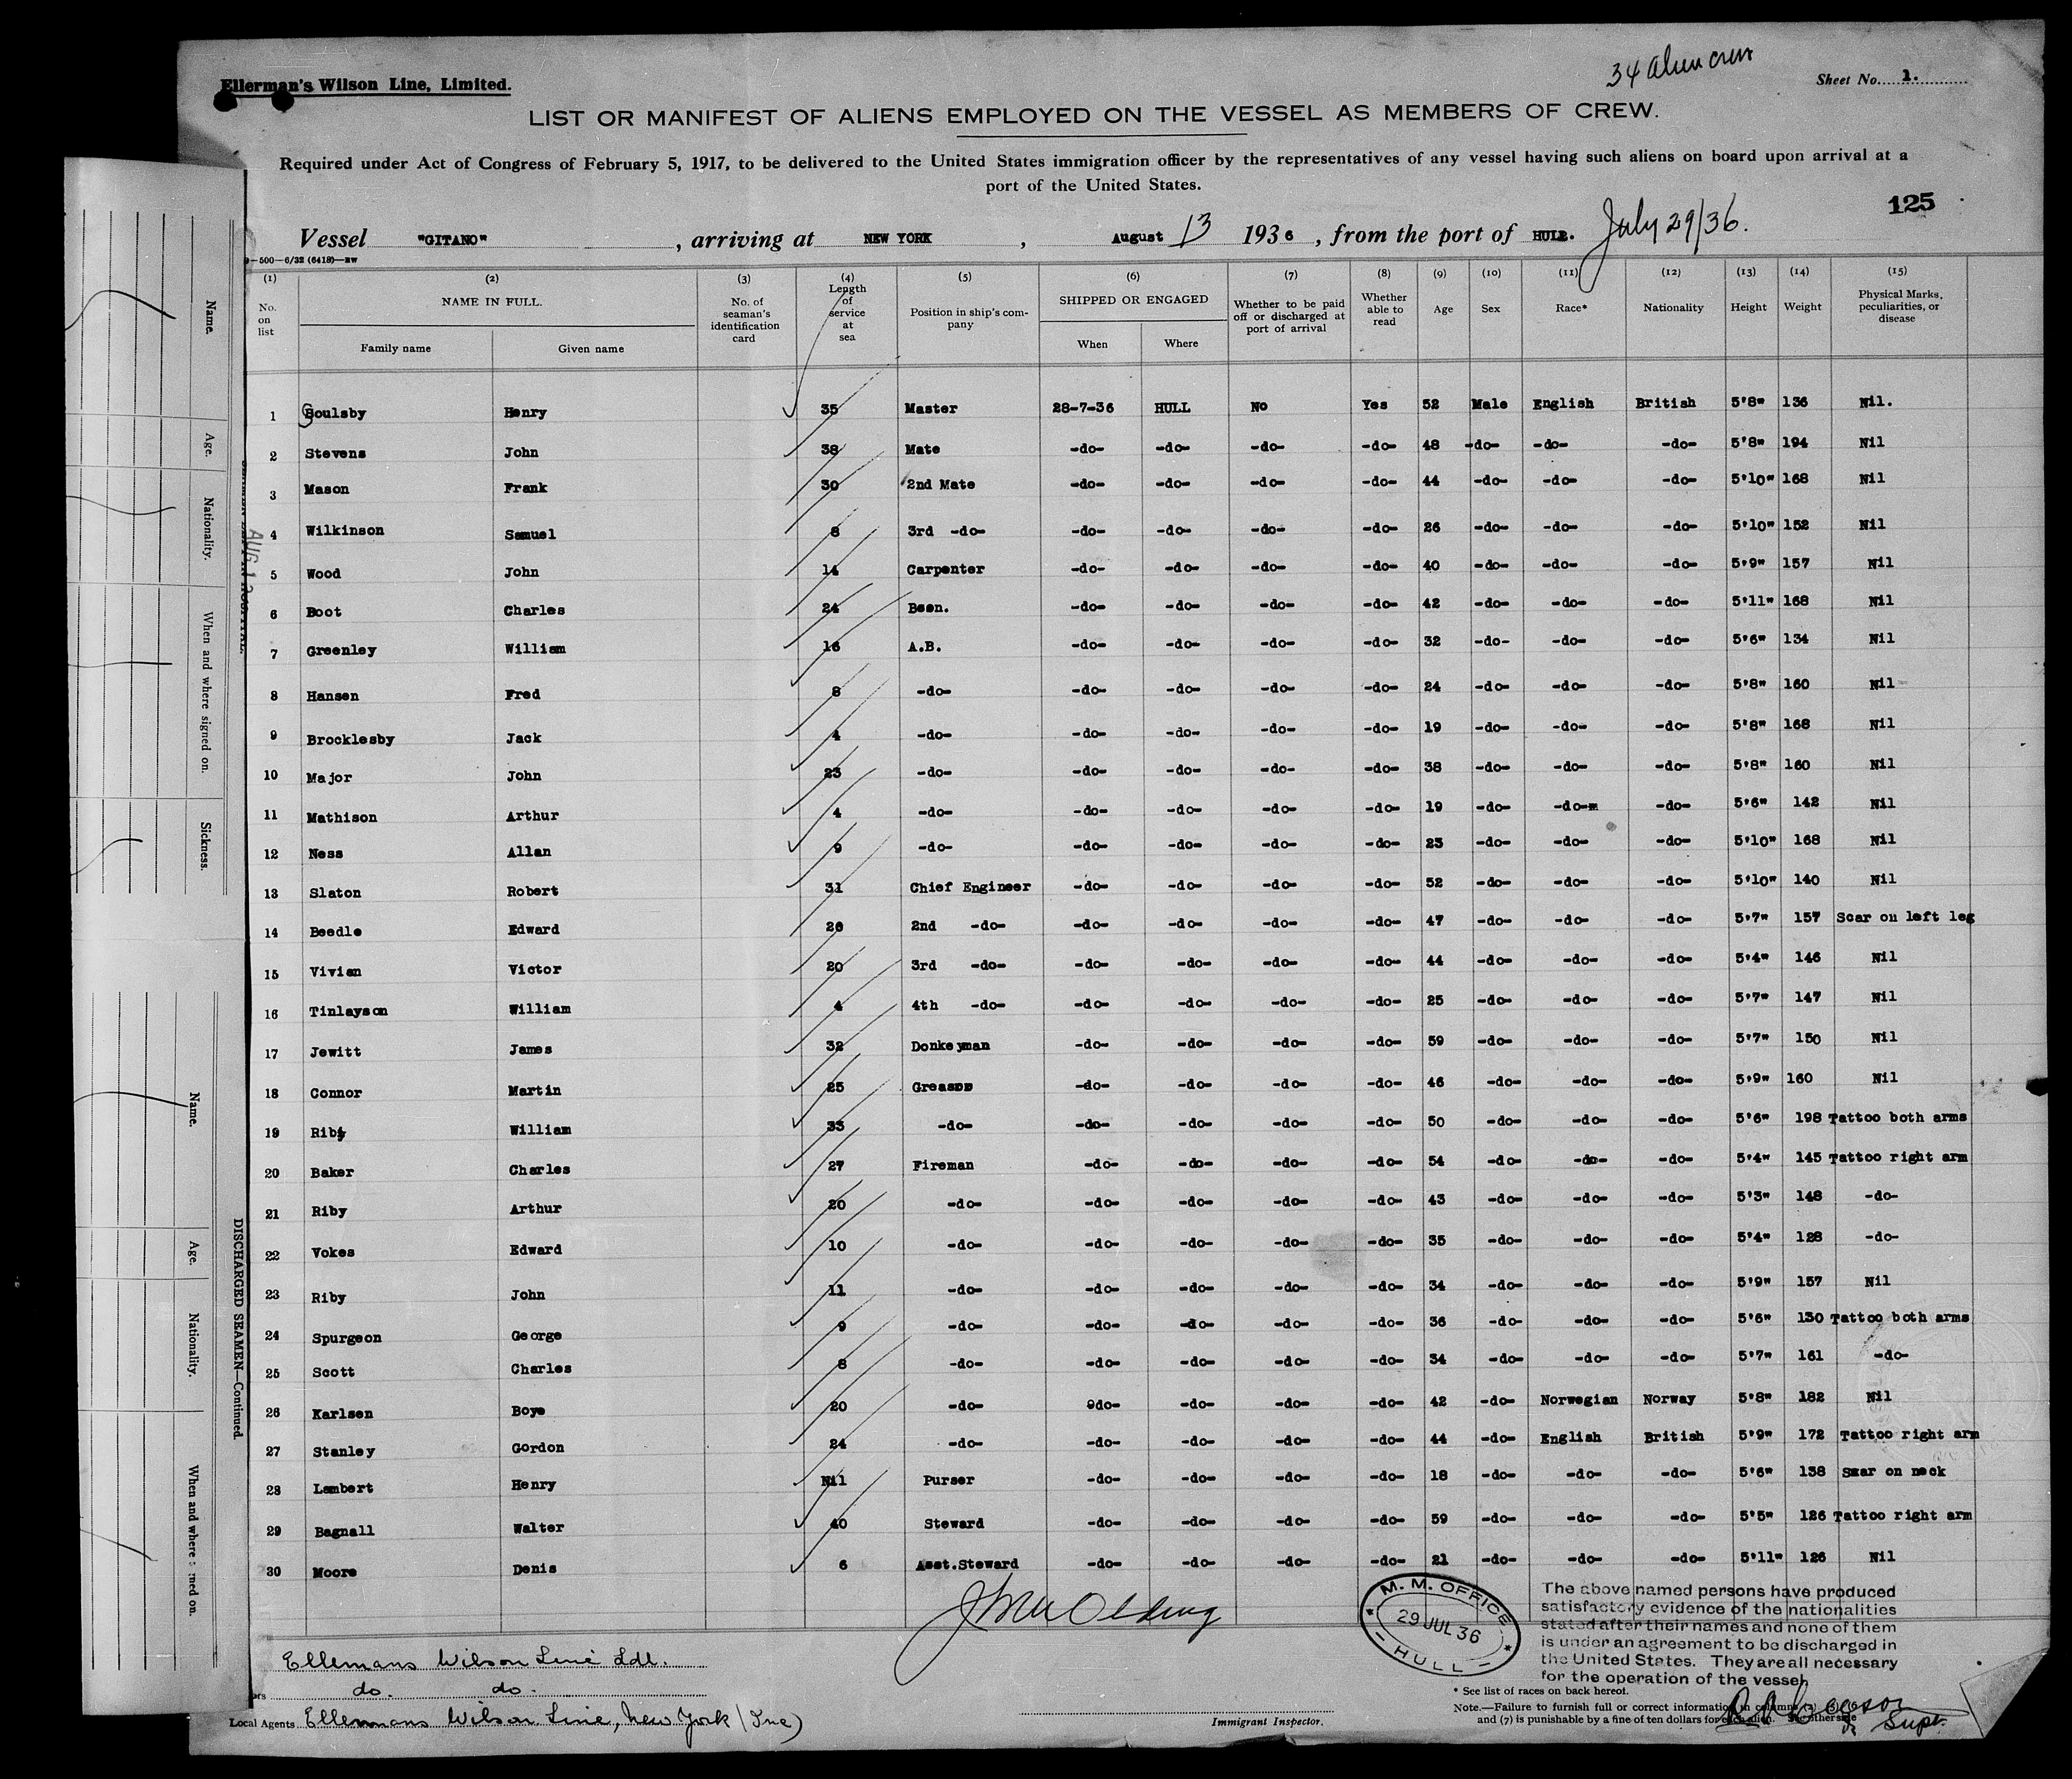 34 alien crew
Ellerman's Wilson Line, Limited.
Sheet No. 1.
LIST OR MANIFEST OF ALIENS EMPLOYED ON THE VESSEL AS MEMBERS OF CREW.
Required under Act of Congress of February 5, 1917, to be delivered to the United States immigration officer by the representatives of any vessel having such aliens on board upon arrival at a
port of the United States.
125
Vessel "GITANO", arriving at NEW YORK, August 13 1936, from the port of HULL. July 29/36.
9—500—6/32 (6418)—RW
(1) (2) (3) (4) (5) (6) (7) (8) (9) (10) (11) (12) (13) (14) (15)
No. on list NAME IN FULL. Family name Given name No. of seaman's identification card Length of service at sea Position in ship's company SHIPPED OR ENGAGED When Where Whether to be paid off or discharged at port of arrival Whether able to read Age Sex Race* Nationality Height Weight Physical Marks, peculiarities, or disease
1 Soulsby Henry 35 Master 28-7-36 HULL No Yes 52 Male English British 5'8" 136 Nil.
2 Stevens John 38 Mate -do- -do- -do- -do- 48 -do- -do- -do- 5'8" 194 Nil
3 Mason Frank 30 2nd Mate -do- -do- -do- -do- 44 -do- -do- -do- 5'10" 168 Nil
4 Wilkinson Samuel 8 3rd -do- -do- -do- -do- -do- 26 -do- -do- -do- 5'10" 152 Nil
5 Wood John 14 Carpenter -do- -do- -do- -do- 40 -do- -do- -do- 5'9" 157 Nil
6 Boot Charles 24 Bosn. -do- -do- -do- -do- 42 -do- -do- -do- 5'11" 168 Nil
7 Greenley William 16 A.B. -do- -do- -do- -do- 32 -do- -do- -do- 5'6" 134 Nil
8 Hansen Fred 8 -do- -do- -do- -do- -do- 24 -do- -do- -do- 5'8" 160 Nil
9 Brocklesby Jack 4 -do- -do- -do- -do- -do- 19 -do- -do- -do- 5'8" 168 Nil
10 Major John 23 -do- -do- -do- -do- -do- 38 -do- -do- -do- 5'8" 160 Nil
11 Mathison Arthur 4 -do- -do- -do- -do- -do- 19 -do- -do-m -do- 5'6" 142 Nil
12 Ness Allan 9 -do- -do- -do- -do- -do- 23 -do- -do- -do- 5'10" 168 Nil
13 Slaton Robert 31 Chief Engineer -do- -do- -do- -do- 52 -do- -do- -do- 5'10" 140 Nil
14 Beedle Edward 26 2nd -do- -do- -do- -do- -do- 47 -do- -do- -do- 5'7" 157 Scar on left leg
15 Vivian Victor 20 3rd -do- -do- -do- -do- -do- 44 -do- -do- -do- 5'4" 146 Nil
16 Tinlayson William 4 4th -do- -do- -do- -do- -do- 25 -do- -do- -do- 5'7" 147 Nil
17 Jewitt James 32 Donkeyman -do- -do- -do- -do- 59 -do- -do- -do- 5'7" 150 Nil
18 Connor Martin 25 -do- -do- -do- -do- 46 -do- -do- -do- 5'9" 160 Nil
19 Riby William 33 -do- -do- -do- -do- -do- 50 -do- -do- -do- 5'6" 198 Tattoo both arms
20 Baker Charles 27 Fireman -do- -do- -do- -do- 54 -do- -do- -do- 5'4" 145 Tattoo right arm
21 Riby Arthur 20 -do- -do- -do- -do- -do- 43 -do- -do- -do- 5'3" 148 -do-
22 Vokes Edward 10 -do- -do- -do- -do- -do- 35 -do- -do- -do- 5'4" 128 -do-
23 Riby John 11 -do- -do- -do- -do- -do- 34 -do- -do- -do- 5'9" 157 Nil
24 Spurgeon George 9 -do- -do- -do- -do- -do- 36 -do- -do- -do- 5'6" 130 Tattoo both arms
25 Scott Charles 8 -do- -do- -do- -do- -do- 34 -do- -do- -do- 5'7" 161 -do-
26 Karlsen Boye 20 -do- 9do- -do- -do- -do- 42 -do- Norwegian Norway 5'8" 182 Nil
27 Stanley Gordon 24 -do- -do- -do- -do- -do- 44 -do- English British 5'9" 172 Tattoo right arm
28 Lambert Henry Nil Purser -do- -do- -do- -do- 18 -do- -do- -do- 5'6" 138 Scar on neck
29 Bagnall Walter 40 Steward -do- -do- -do- -do- 59 -do- -do- -do- 5'5" 126 Tattoo right arm
30 Moore Denis 6 Asst.Steward -do- -do- -do- -do- 21 -do- -do- -do- 5'11" 126 Nil
M. M. OFFICE
29 JUL 36
HULL
The above named persons have produced
satisfactory evidence of the nationalities
stated after their names and none of them
is under an agreement to be discharged in
the United States. They are all necessary
for the operation of the vessel
Ellermans Wilson Line Ldt.
do. do.
Local Agents Ellermans Wilson Line, New York (Inc)
Immigrant Inspector.
* See list of races on back hereof.
Note.—Failure to furnish full or correct information in columns
and (7) is punishable by a fine of ten dollars for each alien. See other side
Supt.
Name.
Age.
Nationality.
When and where signed on.
Sickness.
Name.
Age.
Nationality.
When and where signed on.
DISCHARGED SEAMEN—Continued.